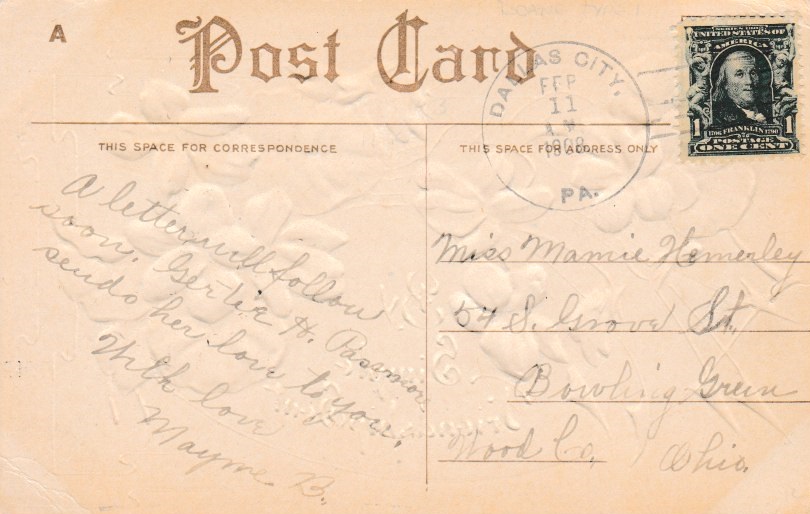 A
Post Card
DALLAS CITY,
FEB
11
A.M.
PA.
SERIES 1902
UNITED STATES OF
AMERICA
1 1
1706 FRANKLIN 1790
POSTAGE
ONE CENT
THIS SPACE FOR CORRESPONDENCE
THIS SPACE FOR ADDRESS ONLY
A letter will follow
soon. Gertie H. Passmore
sends her love to you.
With love
Mayme B.
Miss Mamie Hemerley
54 S. Grove St.
Bowling Green
Wood Co. Ohio.